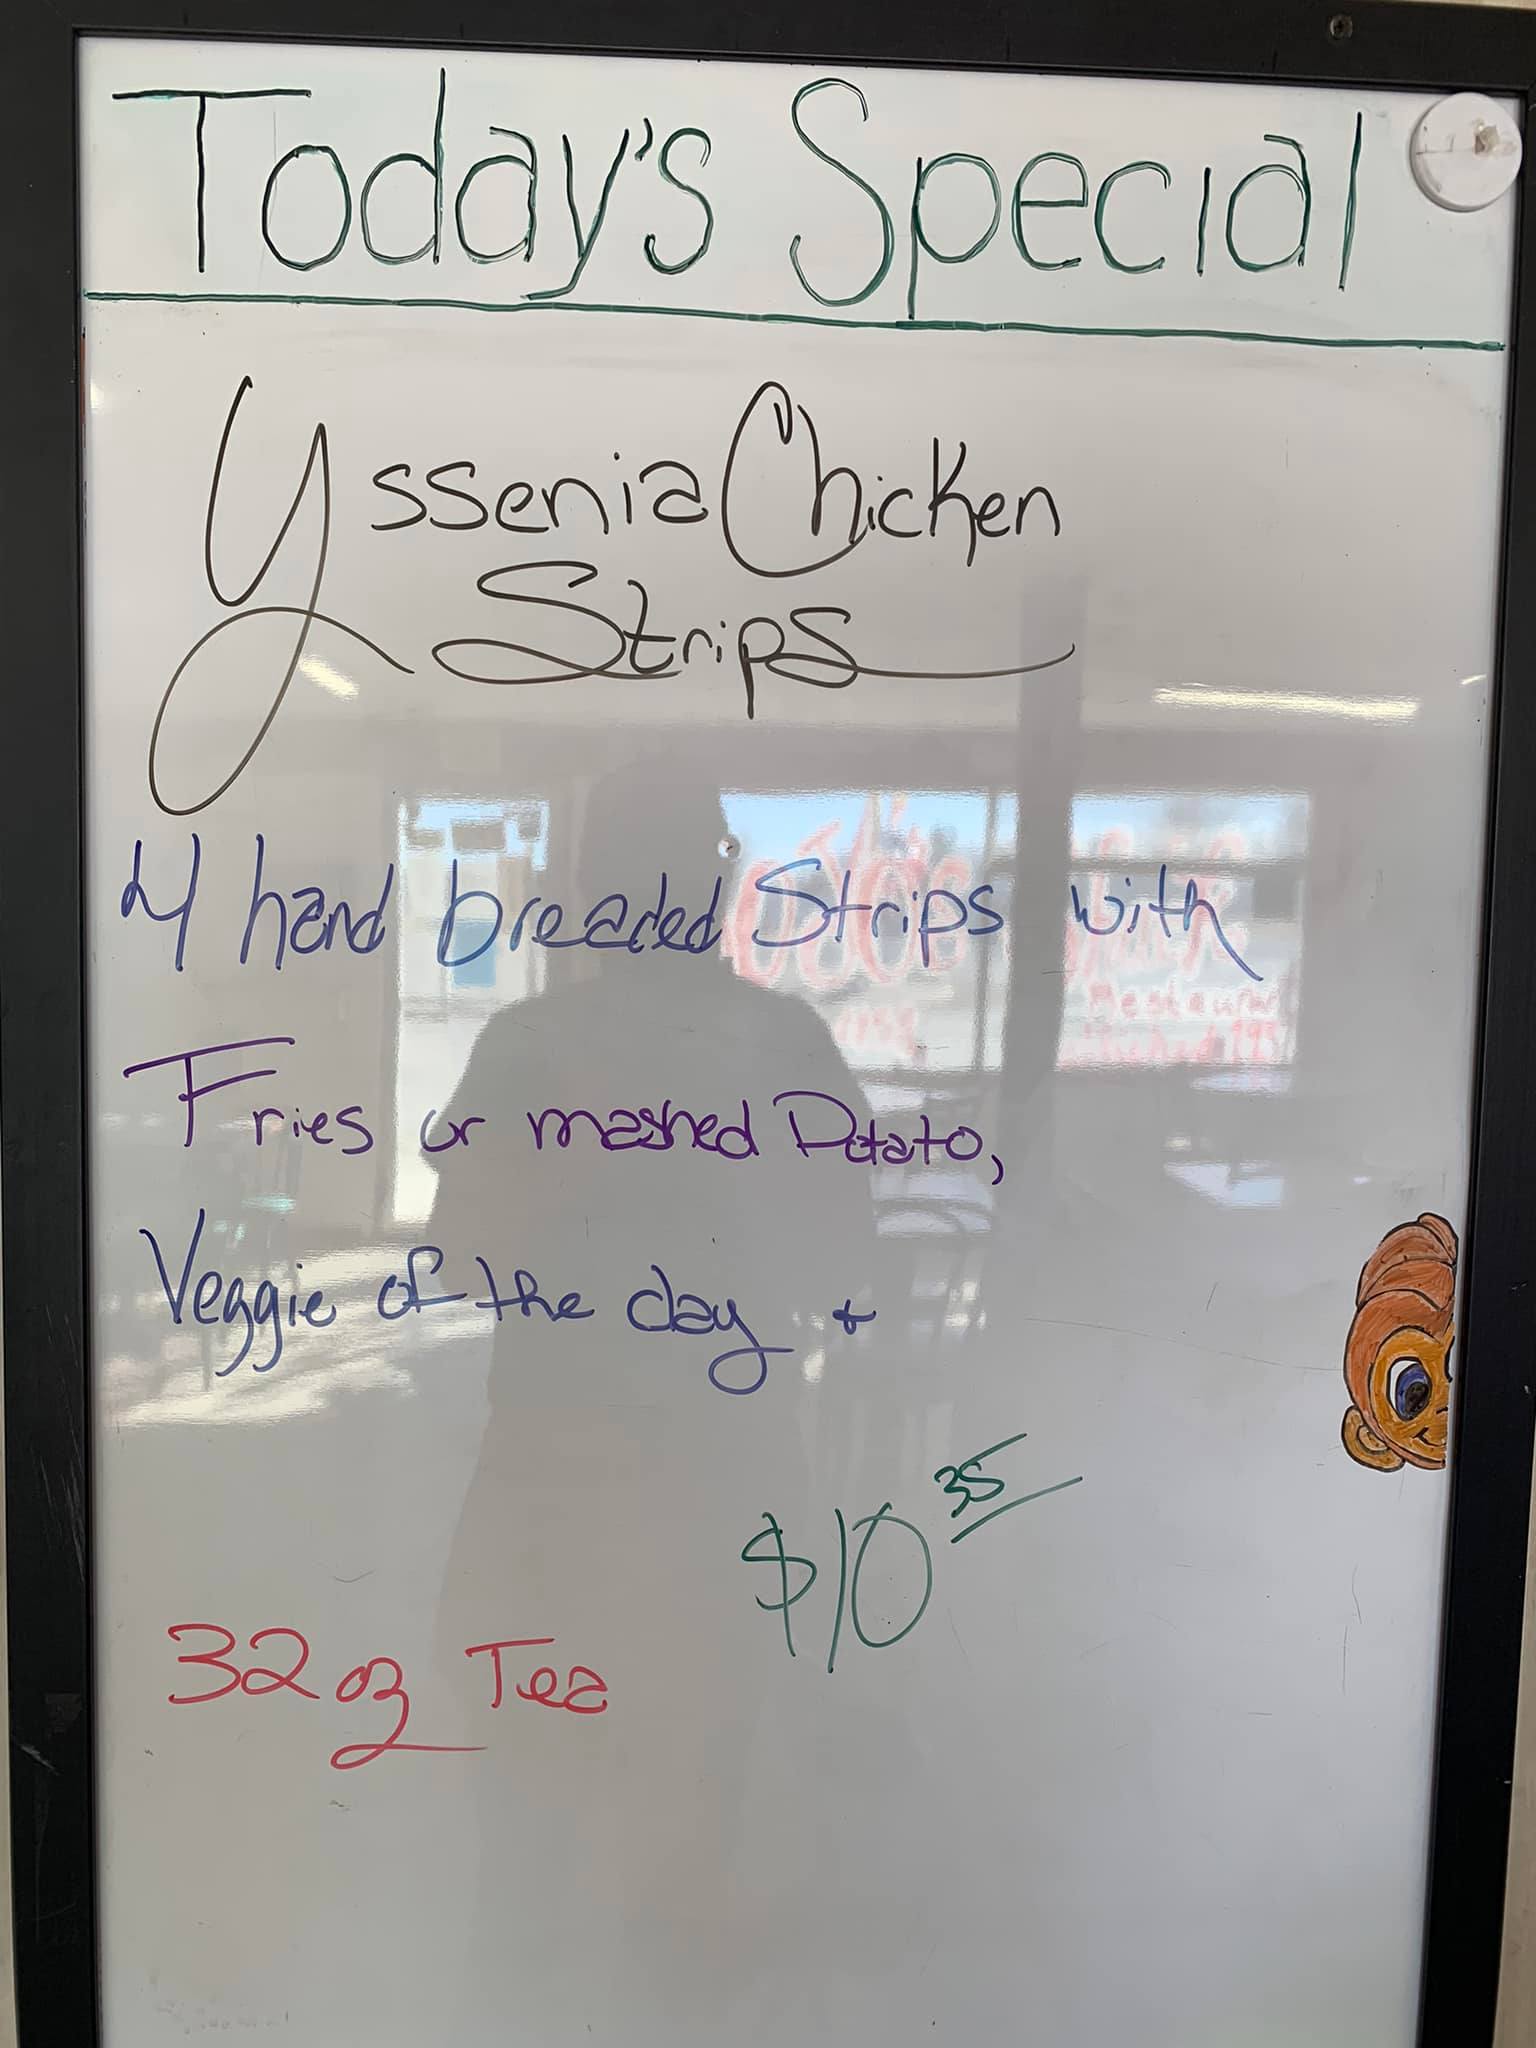 Today's Special
Yssenia Chicken
Strips
4 hand breaded Strips with
Fries or mashed Potato,
Veggie of the day +
$10 35
32 oz Tea
Restaurant